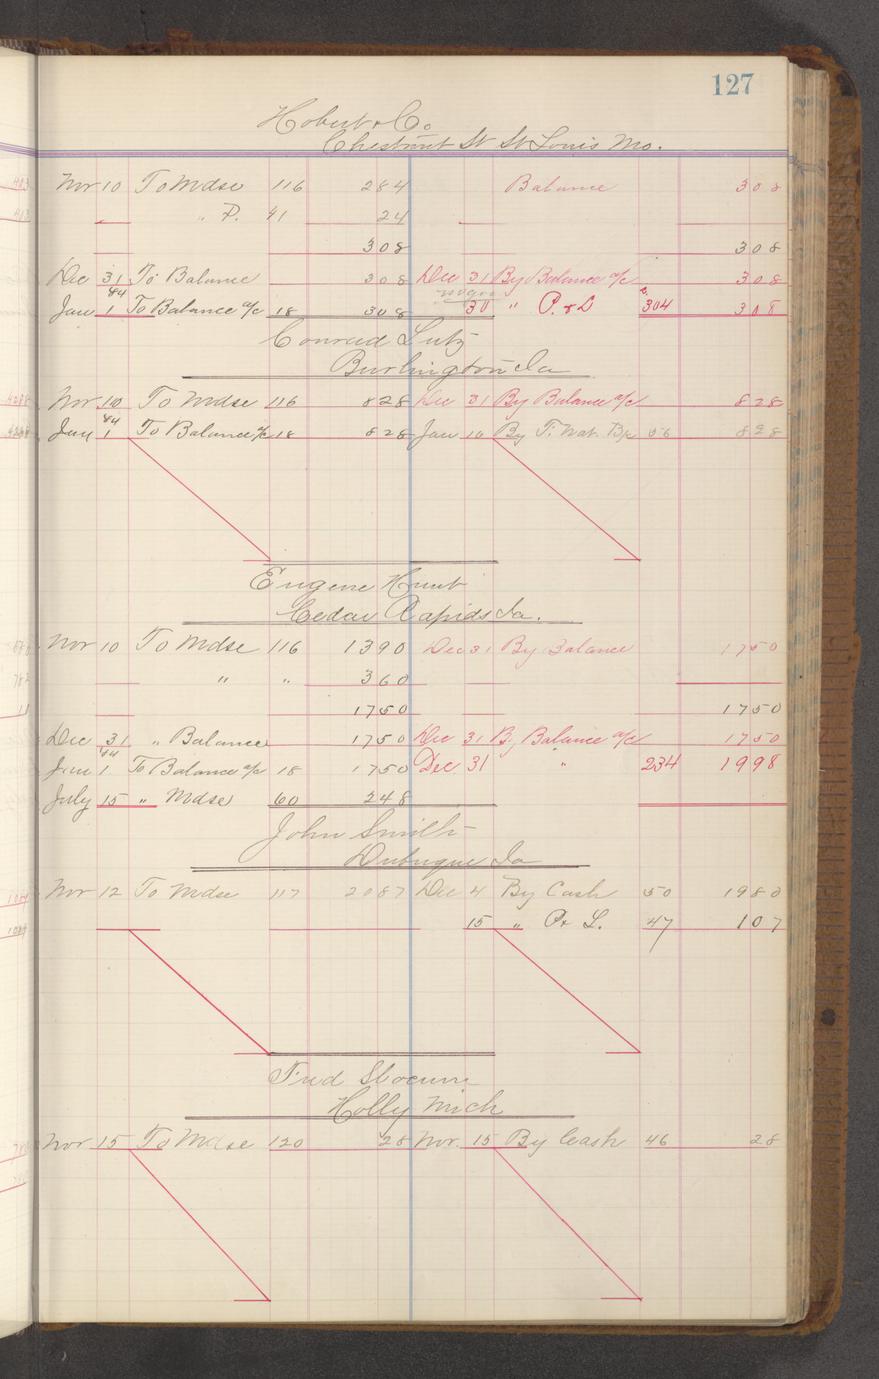 127
Hobert & Co
Chestnut St St Louis Mo.
Nov 10 To Mdse 116 284 Balance 308
" P. 41 24
308 308
Dec 31 To Balance 308 Dec 31 By Balance a/c 308
84
Jan 1 To Balance a/c 18 308 30 " P. & L 304 308
Conrad Lutz
Burlington Ia
Nov 10 To Mdse 116 828 Dec 31 By Balance a/c 828
84
Jan 1 To Balance a/c 18 828 Jan 10 By F. Nat. Bk 56 828
Eugene Hunt
Cedar Rapids Ia.
Nov 10 To Mdse 116 1390 Dec 31 By Balance 1750
" " 360
1750 1750
Dec 31 " Balance 1750 Dec 31 By Balance a/c 1750
84
Jan 1 To Balance a/c 18 1750 Dec. 31 " 234 1998
July 15 " Mdse 60 248
John Smith
Dubuque Ia
Nov 12 To Mdse 117 2087 Dec 4 By Cash 50 1980
15 " P & L. 47 107
Fred Slocum
Holly Mich
Nov 15 To Mdse 120 28 Nov. 15 By Cash 46 28